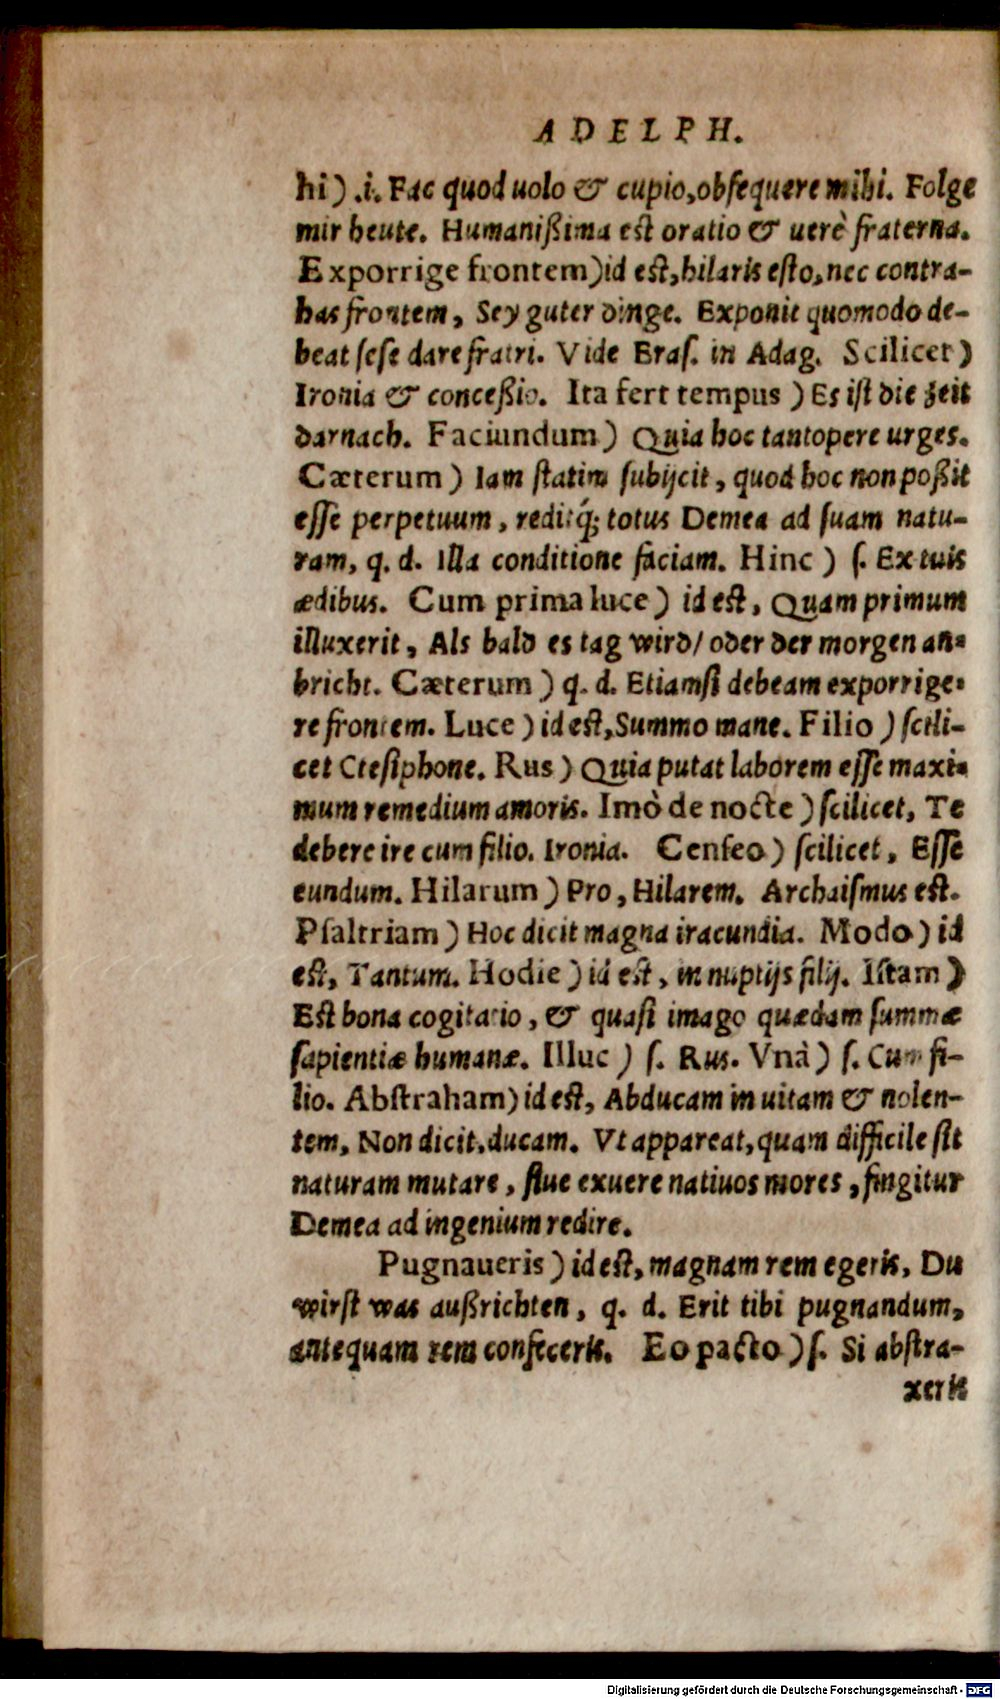 ADELPH.
hi) .i. Fac quod uolo & cupio, obſequere mihi. Folge
mir heute. Humanißima eſt oratio & uerè fraterna.
Exporrige frontem) id eſt, hilaris eſto, nec contra-
has frontem, Sey guter dinge. Exponit quomodo de-
beat ſeſe dare fratri. Vide Eraſ. in Adag. Scilicet)
Ironia & conceßio. Ita fert tempus) Es iſt die zeit
darnach. Faciundum) Quia hoc tantopere urges.
Cæterum) Iam ſtatim ſubijcit, quod hoc non poßit
eſſe perpetuum, reditq́; totus Demea ad ſuam natu-
ram, q. d. Illa conditione faciam. Hinc) ſ. Ex tuis
ædibus. Cum prima luce) id eſt, Quam primum
illuxerit, Als bald es tag wird/ oder der morgen an-
bricht. Cæterum) q. d. Etiamſi debeam exporrige-
re frontem. Luce) id eſt, Summo mane. Filio) ſcili-
cet Cteſiphone. Rus) Quia putat laborem eſſe maxi-
mum remedium amoris. Imò de nocte) ſcilicet, Te
debere ire cum filio. Ironia. Cenſeo) ſcilicet, Eſſe
eundum. Hilarum) Pro, Hilarem. Archaiſmus eſt.
Pſaltriam) Hoc dicit magna iracundia. Modo) id
eſt, Tantum. Hodie) id eſt, in nuptijs filij. Iſtam)
Eſt bona cogitatio, & quaſi imago quædam ſummæ
ſapientiæ humanæ. Illuc) ſ. Rus. Vnà) ſ. Cum fi-
lio. Abſtraham) id eſt, Abducam inuitam & nolen-
tem, Non dicit, ducam. Vt appareat, quam difficile ſit
naturam mutare, ſiue exuere natiuos mores, fingitur
Demea ad ingenium redire.
Pugnaueris) id eſt, magnam rem egeris, Du
wirſt was außrichten, q. d. Erit tibi pugnandum,
antequam rem confeceris. Eo pacto) ſ. Si abſtra-
xeris
Digitalisierung gefördert durch die Deutsche Forschungsgemeinschaft - DFG